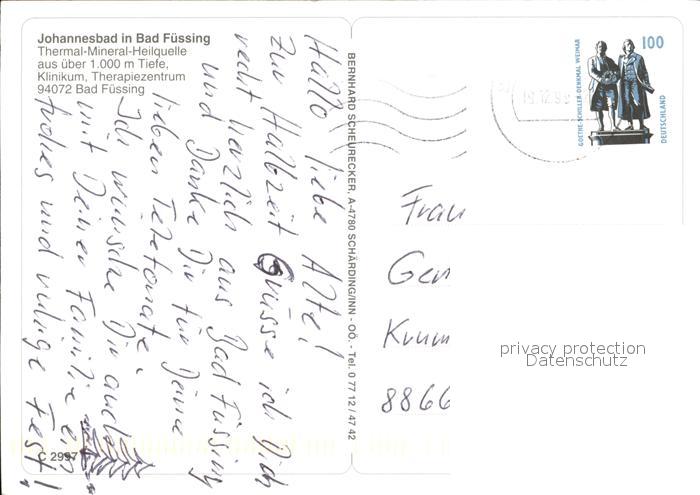 Johannesbad in Bad Füssing
Thermal-Mineral-Heilquelle
aus über 1.000 m Tiefe,
Klinikum, Therapiezentrum
94072 Bad Füssing
Hallo liebe Alte!
Zur Halbzeit Grüsse ich Dich
recht herzlich aus Bad Füssing
und Danke Dir für Deine
lieben Telefonate.
Ich wünsche Dir und
mit Deiner Familie ein
frohes und ruhiges Fest!
C 2997
BERNHARD SCHEURECKER, A-4780 SCHÄRDING/INN - OÖ. - Tel. 0 77 12 / 47 42
GOETHE-SCHILLER-DENKMAL WEIMAR
100
DEUTSCHLAND
Frau
Ger
Krum
8866
privacy protection
Datenschutz